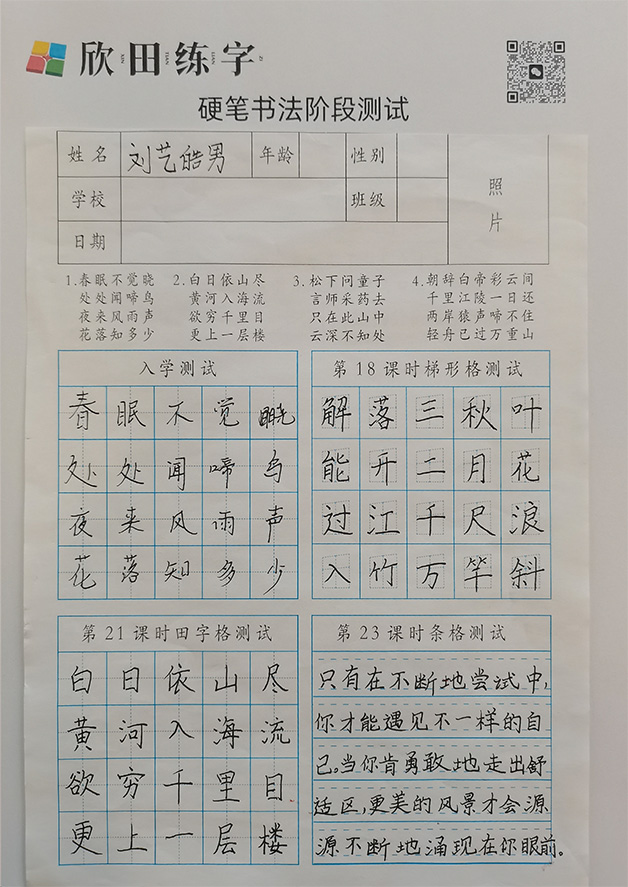 欣田练字
XIN TIAN LIAN ZI
硬笔书法阶段测试
姓名 刘艺皓男 年龄 性别
学校 班级
日期
照片
1.春眠不觉晓 2.白日依山尽 3.松下问童子 4.朝辞白帝彩云间
处处闻啼鸟 黄河入海流 言师采药去 千里江陵一日还
夜来风雨声 欲穷千里目 只在此山中 两岸猿声啼不住
花落知多少 更上一层楼 云深不知处 轻舟已过万重山
入学测试
春眠不觉晓
处处闻啼鸟
夜来风雨声
花落知多少
第18课时梯形格测试
解落三秋叶
能开二月花
过江千尺浪
入竹万竿斜
第21课时田字格测试
白日依山尽
黄河入海流
欲穷千里目
更上一层楼
第23课时条格测试
只有在不断地尝试中,
你才能遇见不一样的自
己。当你肯勇敢地走出舒
适区,更美的风景才会源
源不断地涌现在你眼前。